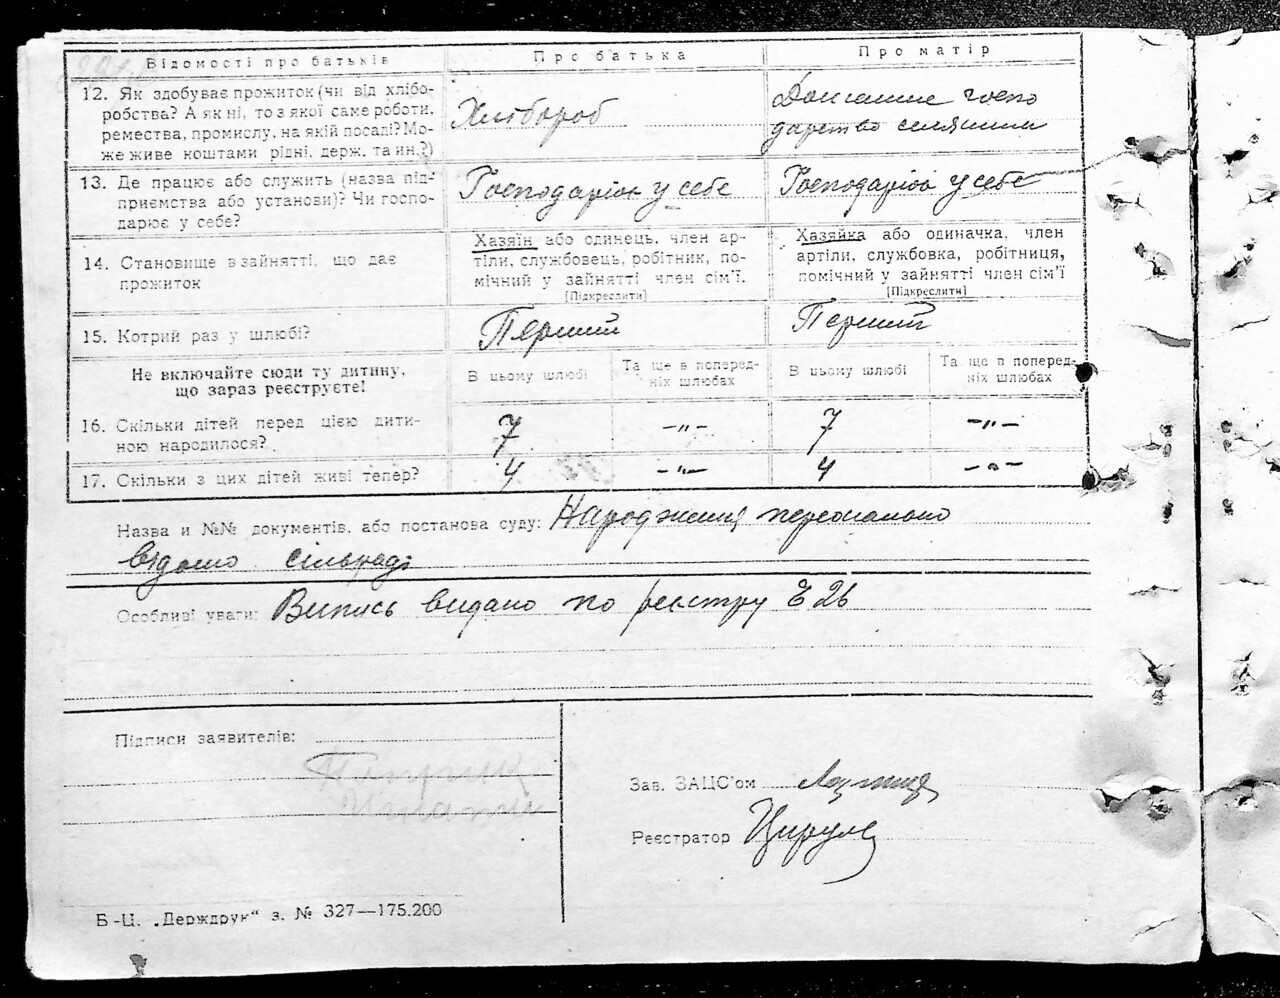 Відомості про батьків
Про батька
Про матір
12. Як здобуває прожиток (чи від хлібо-
робства? А як ні, то з якої саме роботи,
ремества, промислу, на якій посаді? Мо-
же живе коштами рідні, держ. та ин.?)
Хлібороб
Домашнє госпо
дарство селянин
13. Де працює або служить (назва під-
приємства або установи)? Чи госпо-
дарює у себе?
Господарює у себе
Господарює у себе
14. Становище в зайнятті, що дає
прожиток
Хазяїн або одинець, член ар-
тіли, службовець, робітник, по-
мічний у зайнятті член сім'ї.
[Підкреслити]
Хазяйка або одиначка, член
артіли, службовка, робітниця,
помічний у зайнятті член сім'ї
[Підкреслити]
15. Котрий раз у шлюбі?
Перший
Перший
Не включайте сюди ту дитину,
що зараз реєструєте!
В цьому шлюбі
Та ще в поперед-
ніх шлюбах
В цьому шлюбі
Та ще в поперед-
ніх шлюбах
16. Скільки дітей перед цією дити-
ною народилося?
7
—„—
7
—„—
17. Скільки з цих дітей живі тепер?
4
—„—
4
—„—
Назва и №№ документів, або постанова суду: Народження персонально
відомо сільраді
Особливі уваги: Випись видано по реєстру Є 26
Підписи заявителів:
Зав. ЗАЦС'ом
Реєстратор Цируле
Б-Ц. „Держдрук“ з. № 327—175.200